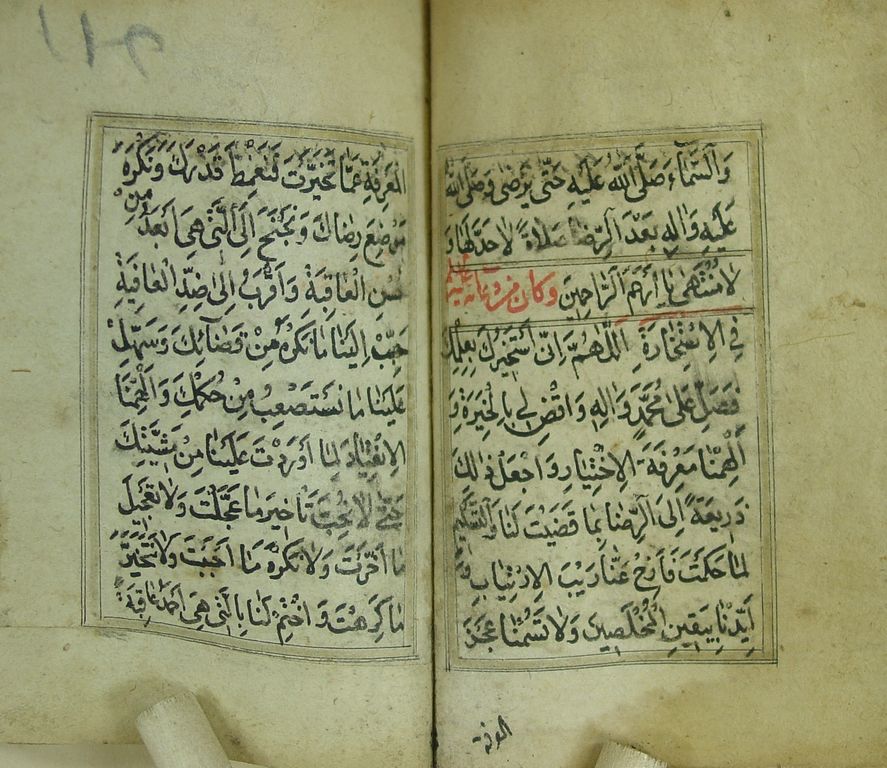 وَالسَّمَاءَ صَلَّى اللهُ عَلَيْهِ حَتّٰى يَرْضٰى وَصَلَّى اللهُ
عَلَيْهِ وَاٰلِهِ بَعْدَ الرِّضَا صَلَاةً لَا حَدَّ لَهَا وَ
لَا مُنْتَهٰى يَا اَرْحَمَ الرَّاحِمِينَ وَكَانَ مِنْ دُعَائِهِ
فِي الْاِسْتِخَارَةِ اَللّٰهُمَّ اِنِّي اَسْتَخِيرُكَ بِعِلْمِكَ
فَصَلِّ عَلٰى مُحَمَّدٍ وَاٰلِهِ وَاقْضِ لِي بِالْخِيَرَةِ وَ
اَلْهِمْنَا مَعْرِفَةَ الْاِخْتِيَارِ وَاجْعَلْ ذٰلِكَ
ذَرِيعَةً اِلَى الرِّضَا بِمَا قَضَيْتَ لَنَا وَالتَّسْلِيمِ
لِمَا حَكَمْتَ فَاَزِحْ عَنَّا رَيْبَ الْاِرْتِيَابِ وَ
اَيِّدْنَا بِيَقِينِ الْمُخْلَصِينَ وَلَا تَسُمْنَا عَجْزَ
المعرفة
الْمَعْرِفَةِ عَمَّا تَخَيَّرْتَ فَنَغْمِطَ قَدْرَكَ وَنَكْرَهَ
مَوْضِعَ رِضَاكَ وَنَجْنَحَ اِلَى الَّتِي هِيَ اَبْعَدُ مِنْ
حُسْنِ الْعَاقِبَةِ وَاَقْرَبُ اِلٰى ضِدِّ الْعَافِيَةِ
حَبِّبْ اِلَيْنَا مَا نَكْرَهُ مِنْ قَضَائِكَ وَسَهِّلْ
عَلَيْنَا مَا نَسْتَصْعِبُ مِنْ حُكْمِكَ وَاَلْهِمْنَا
الْاِنْقِيَادَ لِمَا اَوْرَدْتَ عَلَيْنَا مِنْ مَشِيَّتِكَ
حَتّٰى لَا نُحِبَّ تَأْخِيرَ مَا عَجَّلْتَ وَلَا تَعْجِيلَ
مَا اَخَّرْتَ وَلَا نَكْرَهَ مَا اَحْبَبْتَ وَلَا نَتَخَيَّرَ
مَا كَرِهْتَ وَاخْتِمْ لَنَا بِالَّتِي هِيَ اَحْمَدُ عَاقِبَةً